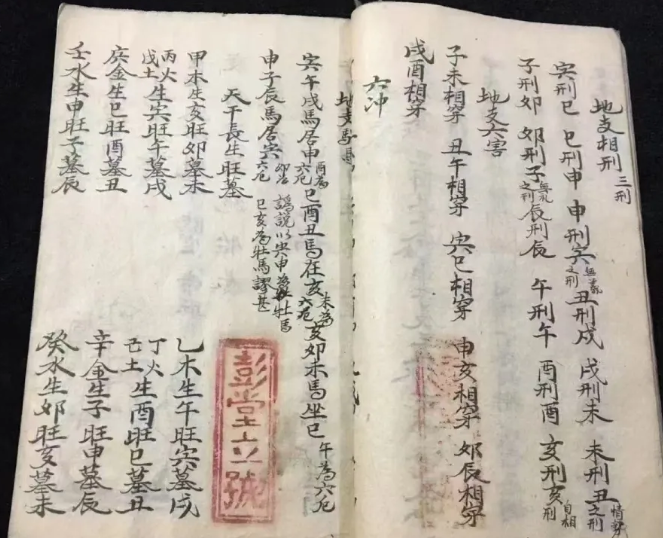 地支相刑 三刑
寅刑巳 巳刑申 申刑寅 之刑 丑刑戌 戌刑未 未刑丑 之刑
子刑卯 卯刑子 無禮之刑 辰刑辰 午刑午 酉刑酉 亥刑亥 自相刑
地支六害
子未相穿 丑午相穿 寅巳相穿 申亥相穿 卯辰相穿
戌酉相穿
六冲
地支馬
寅午戌馬居申 酉為六厄 巳酉丑馬在亥 六厄 亥卯未馬坐巳 午為六厄
申子辰馬居寅 卯為六厄 謬說以寅申為牡馬
巳亥為牡馬謬甚
天干長生旺墓
甲木生亥旺卯墓未 乙木生午旺寅墓戌
丙火戊土生寅旺午墓戌 丁火己土生酉旺巳墓丑
庚金生巳旺酉墓丑 辛金生子旺申墓辰
壬水生申旺子墓辰 癸水生卯旺亥墓未
彭堂立號